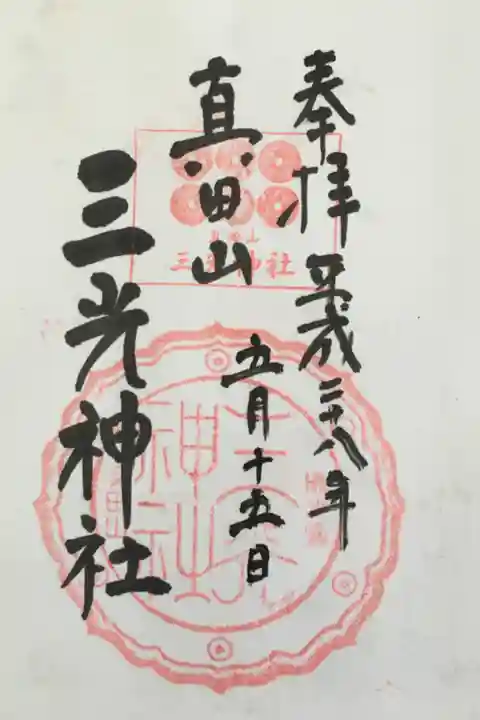 奉拝 平成二十八年
五月十五日
真田山
三光神社
真田山
三光神社